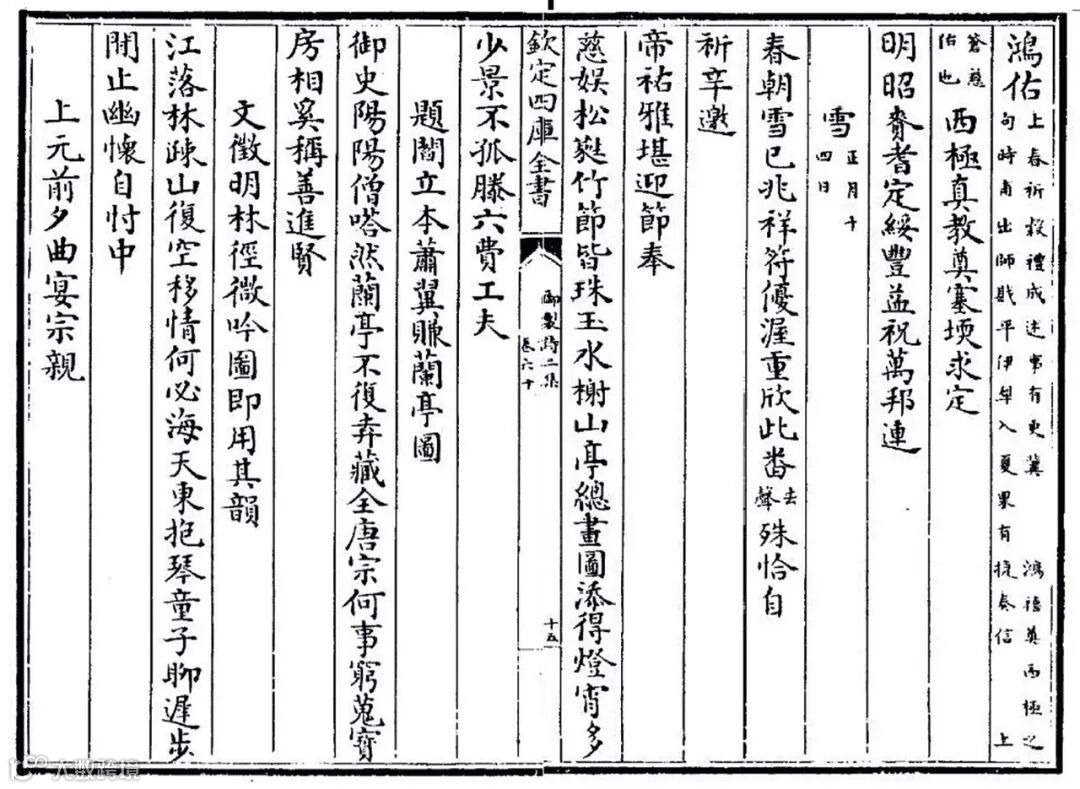 鴻佑上春祈穀禮成述事有更冀 鴻德奠西極之
句時甫出師戡平伊犂入夏果有捷奏信 上
蒼慈
佑也西極真教奠塞堧求定
明昭賚耆定綏豐益祝萬邦連
雪正月十
四日
春朝雪已兆祥符優渥重欣此番去聲殊恰自
祈辛邀
帝祐雅堪迎節奉
慈娛松蕤竹節皆珠玉水榭山亭總畫圖添得燈宵多
欽定四庫全書
御製詩二集
卷六十
十五
少景不孤滕六費工夫
題閻立本蕭翼賺蘭亭圖
御史陽陽僧嗒然蘭亭不復弆藏全唐宗何事窮蒐寶
房相奚稱善進賢
文徵明林徑微吟圖即用其韻
江落林疎山復空移情何必海天東抱琴童子聊遲步
閒止幽懷自忖中
上元前夕曲宴宗親
大数跨境